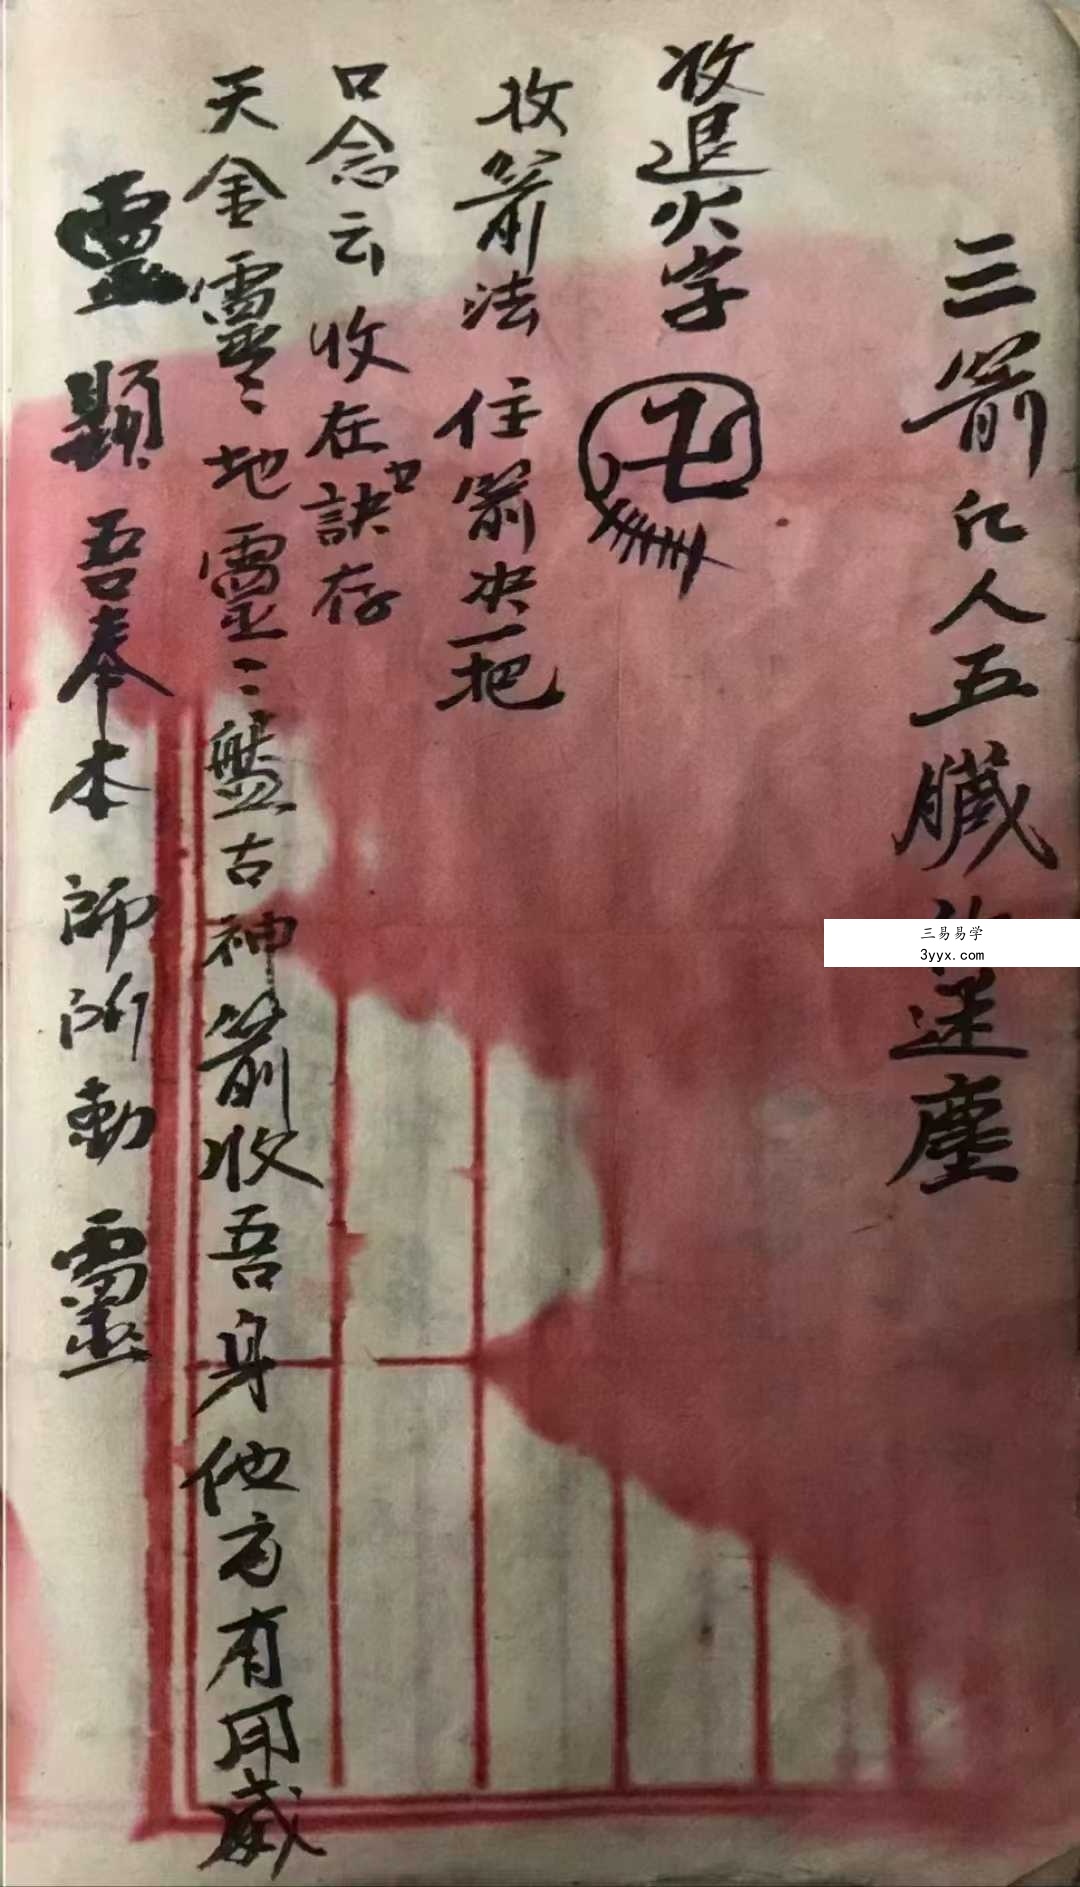 三箭仁人五臟化爲迷塵
收退火字
收箭法 住箭决一把
口念云 收在訣存
天金靈〻地靈〻盤古神箭收吾身他方有用威
靈顯 吾奉本師所動 靈
三易易学
3yyx.com